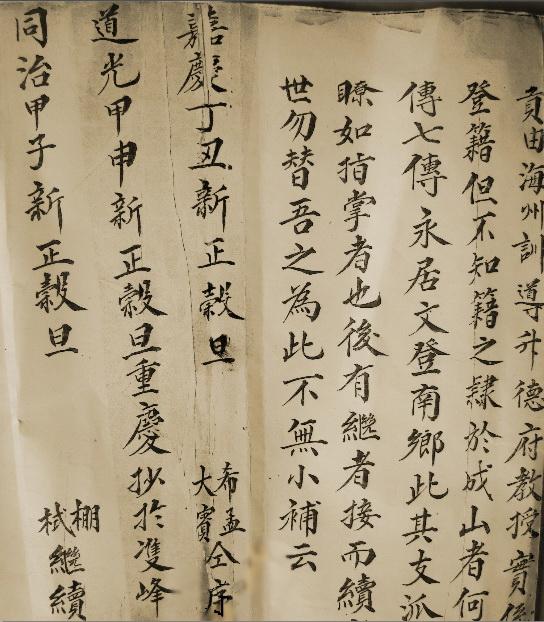 貢由海州訓導升德府教授實係
登籍但不知籍之隸於成山者何
傳七傳永居文登南鄉此其支派
瞭如指掌者也後有繼者接而續
世勿替吾之為此不無小補云
嘉慶丁丑新正穀旦
希孟
大賓
仝序
道光甲申新正穀旦重慶抄於雙峰
同治甲子新正穀旦
棚
栻
繼續